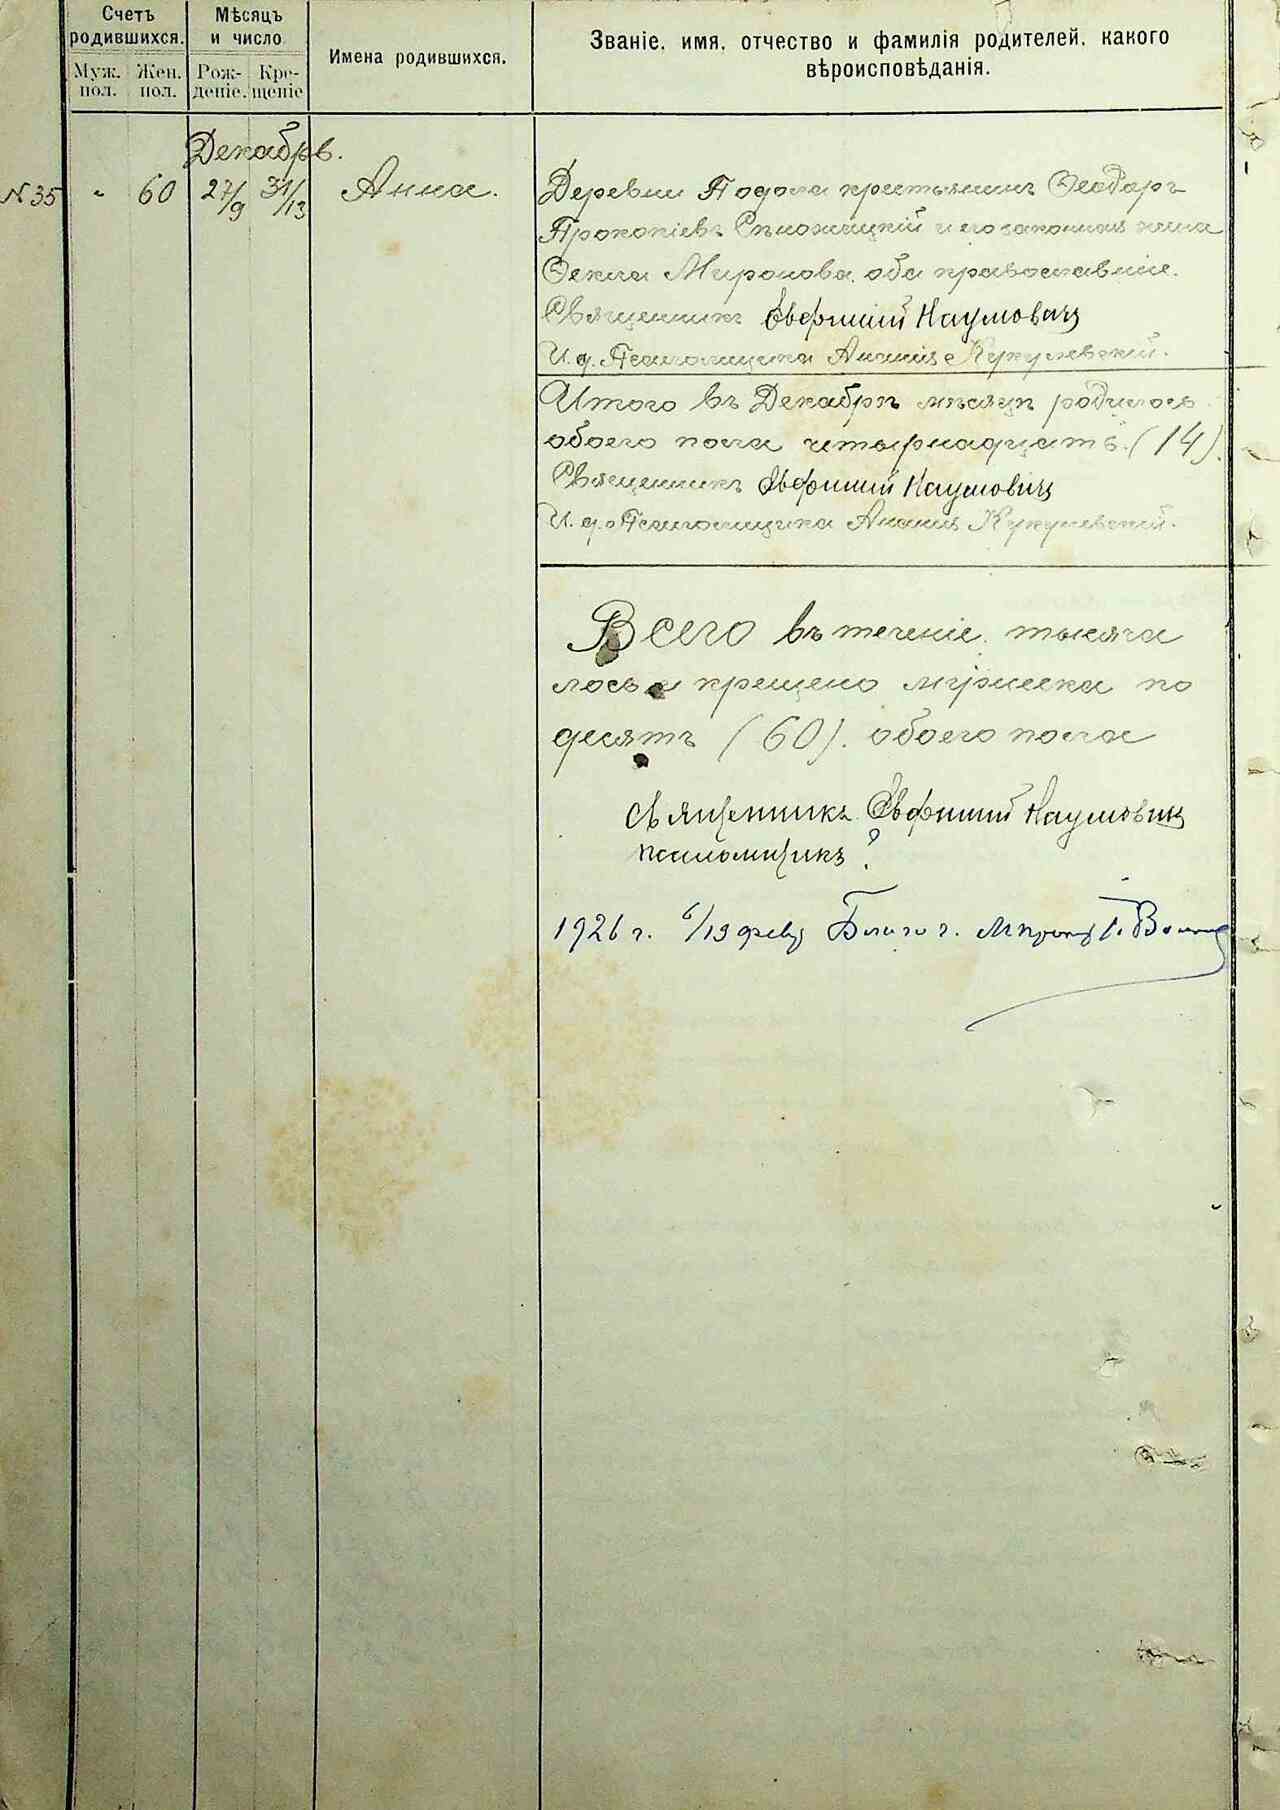 Счетъ родившихся.
Муж. пол.
Жен. пол.
Мѣсяцъ и число
Рож-деніе.
Кре-щеніе
Имена родившихся.
Званіе, имя, отчество и фамилія родителей, какого
вѣроисповѣданія.
Декабрь.
N 35 " 60 27/9 31/13 Анна.
Деревни Подола крестьянинъ Ѳеодоръ
Прокопіевъ и его законная жена
Ѳекла Миронова, оба православные.
Священникъ Евфимій Наумовичъ
И. д. Псаломщика Ананія Кукулевскій.
Итого въ Декабрѣ мѣсяцѣ родилось
обоего пола четырнадцать (14).
Священникъ Евфимій Наумовичъ
И. д. Псаломщика Ананія Кукулевскій.
Всего въ теченіе тысяча
лось и крещено мужеска по
десятъ (60). обоего пола
Священникъ Евфимій Наумовичъ
псаломщикъ ?
1926 г. 6/19 февр Благоч.